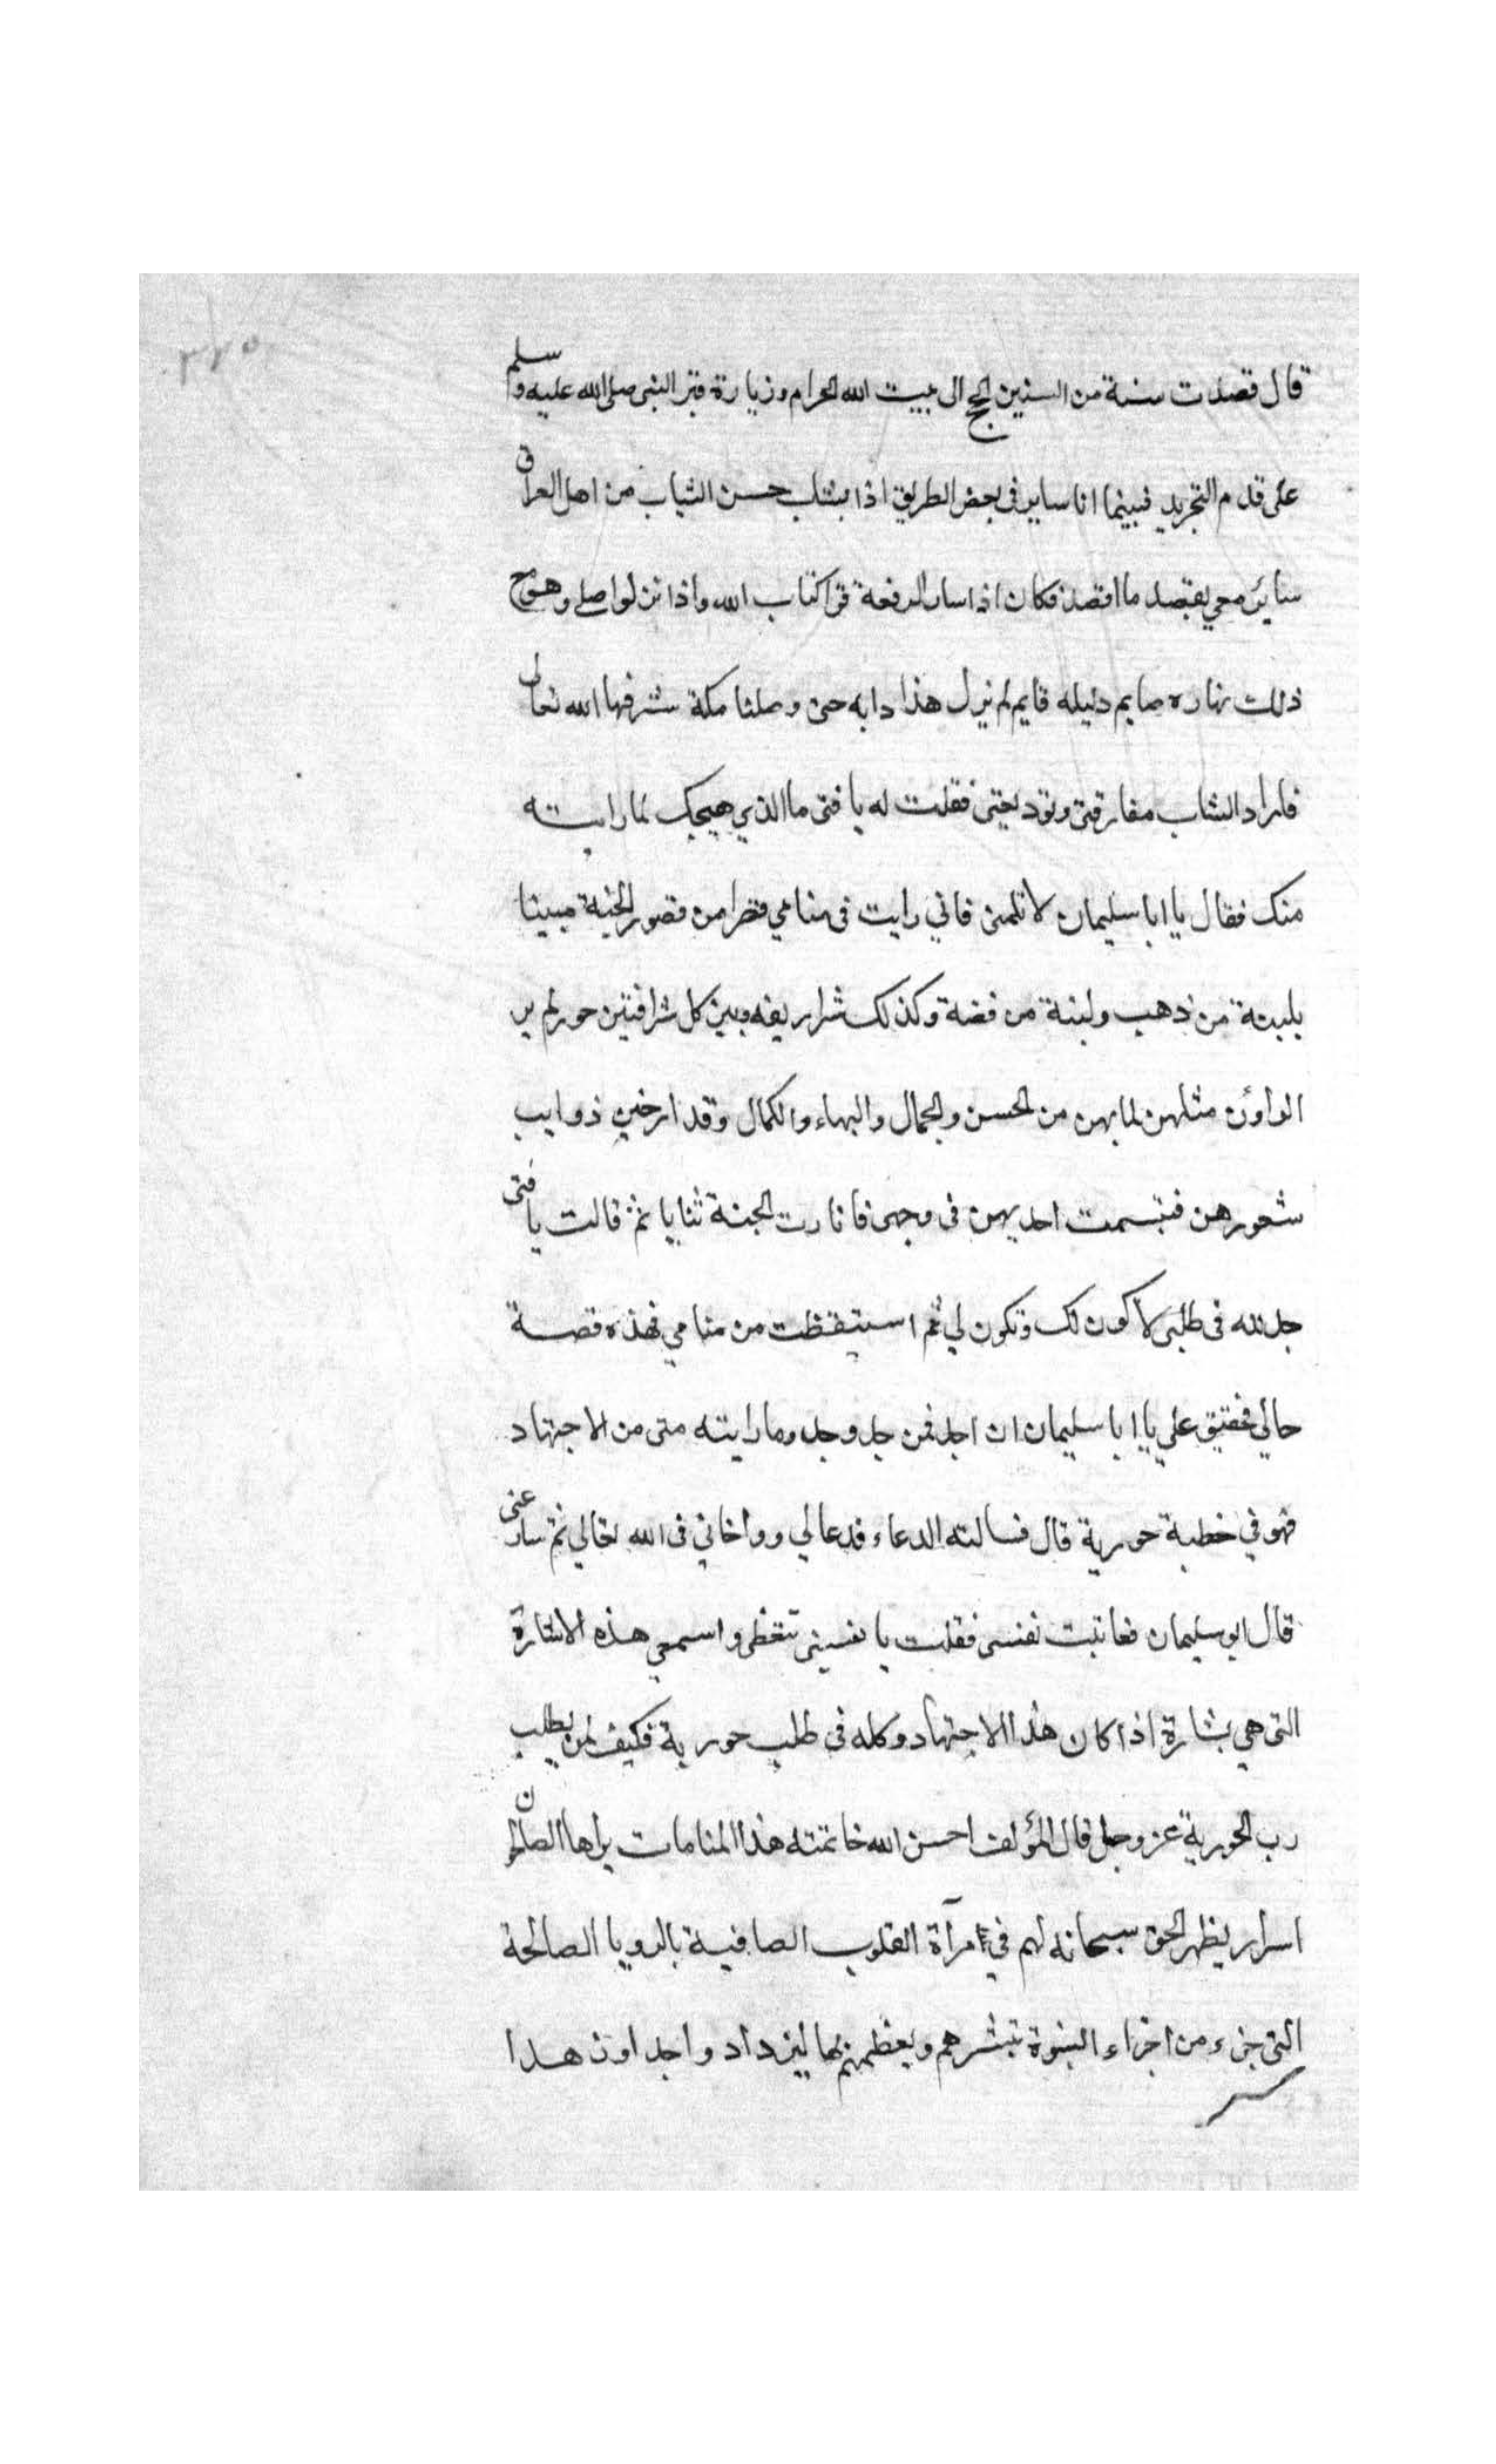 ٣٢٥
قال قصدت سنة من السنين الحج الى بيت الله الحرام وزيارة قبر النبى صلى الله عليه وسلم
على قدم التجريد فبينما انا ساير فى بعض الطريق اذا بشاب حسن الشباب من اهل العراق
ساير معي يقصد ما اقصد فكان اذا سار الرفعة قرا كتاب الله واذا نزلوا صلى وهو مع
ذلك نهاره صايم وليله قايم لم يزل هذا دابه حتى وصلنا مكة شرفها الله تعالى
فاراد الشاب مفارقتى وتوديعتى فقلت له يا فتى ما الذي هيجك لما رايته
منك فقال يا ابا سليمان لا تلمنى فاني رايت فى منامي قصرا من قصور الجنة مبينا
بلبنة من ذهب ولبنة من فضة وكذلك شراريفه وبين كل شرافتين حور لم ير
الراؤن مثلهن لما بهن من الحسن والجمال والبهاء والكمال وقد ارخين ذوايب
شعورهن فتبسمت احديهن فى وجهى فانارت الجنة ثنايا ثم قالت يا فتى
جد لله فى طلبى لاكون لك وتكون لي ثم استيقظت من منامي فهذه قصة
حالي فحقيق علي يا ابا سليمان ان اجد فمن جد وجد وما رايته منى من الاجتهاد
فهو في خطبة حورية قال فسالته الدعاء فدعا لي وواخاني فى الله تعالي ثم سار عنى
قال ابو سليمان فعاتبت نفسى فقلت يا نفسى تيقظى واسمعي هذه الاشارة
التى هي بشارة اذا كان هذا الاجتهاد وكله فى طلب حورية فكيف لمن يطلب
رب الحورية عز وجل قال المؤلف احسن الله خاتمته هذا المنامات يراها الصالحون
اسرار يظهر الحق سبحانه لهم في مرآة القلوب الصافية بالرويا الصالحة
التى جزء من اجزاء النبوة تبشرهم ويعظمهم بها ليزداد واجد اون هدا